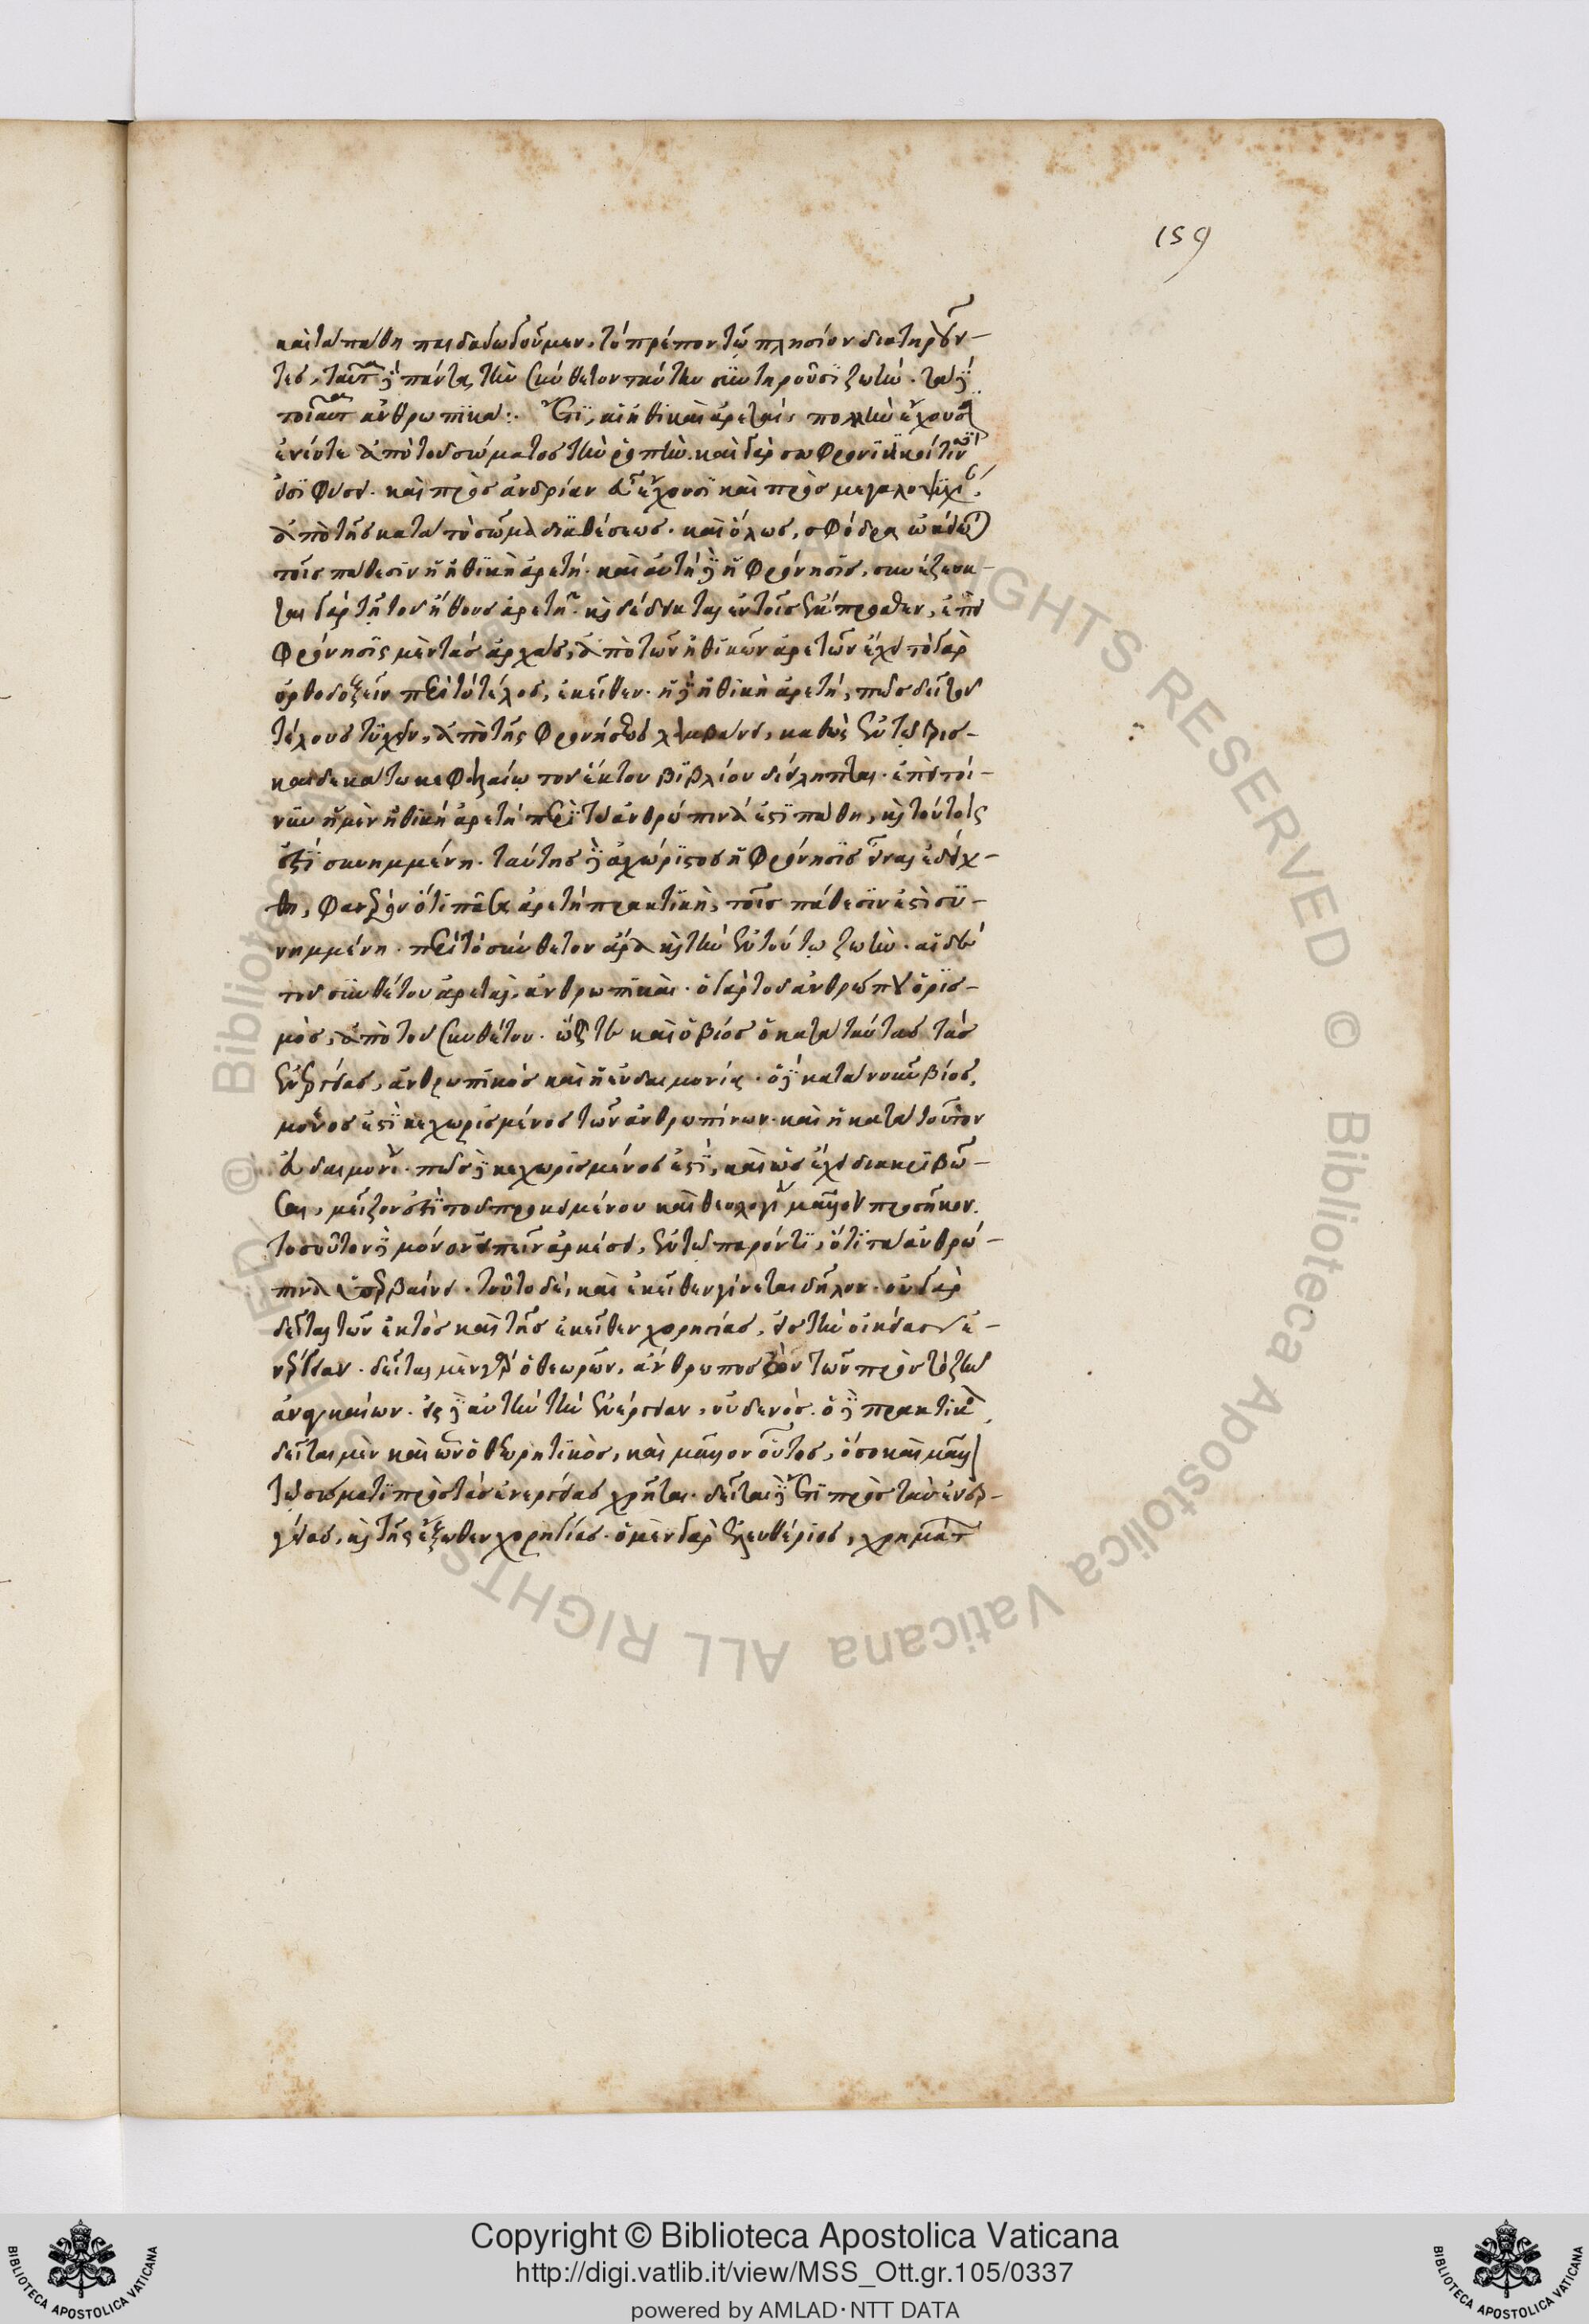 159
καὶ τὰ πάθη παιδαγωγοῦμεν, τὸ πρέπον τῷ πλησίον διατηροῦν-
τες, ταῦτα δὲ πάντα τὴν σύνθετον ταύτην συντηροῦσι ζωήν. τὰ δὲ
τοιαῦτα ἀνθρωπικά:. Ἔτι, αἱ ἠθικαὶ ἀρεταὶ, πολλὴν ἔχουσι
ἐνίοτε ἀπὸ τοῦ σώματος τὴν ῥοπὴν. καὶ γὰρ σωφρονικοί τινές
εἰσι φύσει. καὶ πρὸς ἀνδρίαν εὖ ἔχουσι καὶ πρὸς μεγαλοψυχίαν
ἀπὸ τῆς κατὰ τὸ σῶμα διαθέσεως. καὶ ὅλως, σφόδρα ᾠκείωται
τοῖς πάθεσιν ἡ ἠθικὴ ἀρετή. καὶ αὐτὴ δὲ ἡ φρόνησις, συνέζευκ-
ται γὰρ τῇ τοῦ ἤθους ἀρετῇ. ὡς δέδεικται ἐν τοῖς ἔμπροσθεν, ἐπεὶ
φρόνησις μὲν τὰς ἀρχὰς, ἀπὸ τῶν ἠθικῶν ἀρετῶν ἔχει τὸ γὰρ
ὀρθοδοξεῖν περὶ τὸ τέλος, ἐκεῖθεν. ἡ δὲ ἠθικὴ ἀρετή, πῶς δεῖ τοῦ
τέλους τυχεῖν, ἀπὸ τῆς φρονήσεως λαμβάνει, καθὼς ἐν τῷ τρισ-
καιδεκάτῳ κεφαλαίῳ τοῦ ἕκτου βιβλίου διείληπται. ἐπεὶ τοί-
νυν ἡ μὲν ἠθικὴ ἀρετὴ περὶ τὰ ἀνθρώπινά ἐστι πάθη, καὶ τούτοις
ἐστὶ συνημμένη. ταύτης δὲ ἀχώριστος ἡ φρόνησις εἶναι ἐδείχ-
θη, φανερὸν ὅτι πᾶσα ἀρετὴ πρακτικὴ, τοῖς πάθεσιν ἐστὶ συ-
νημμένη. περὶ τὸ σύνθετον ἄρα καὶ τὴν ἐν τούτῳ ζωήν. αἱ δὲ
τοῦ συνθέτου ἀρεταὶ, ἀνθρωπικαί. ὁ γὰρ τοῦ ἀνθρώπου ὁρισ-
μὸς, ἀπὸ τοῦ συνθέτου. ὥστε καὶ ὁ βίος ὁ κατὰ ταύτας τὰς
ἐνεργείας, ἀνθρωπικὸς καὶ ἡ εὐδαιμονία. ὁ δὲ κατὰ νοῦν βίος,
μόνος ἐστὶ κεχωρισμένος τῶν ἀνθρωπίνων. καὶ ἡ κατὰ τοῦτον
εὐδαιμονία. πῶς δὲ κεχωρισμένος ἐστί, καὶ ὡς ἔχει διακριβῶ-
σαι, μεῖζον ἐστὶ τοῦ προκειμένου καὶ θεολογίᾳ μᾶλλον προσῆκον.
τοσοῦτον δὲ μόνον εἰπεῖν ἀρκέσει, ἐν τῷ παρόντι, ὅτι τὰ ἀνθρώ-
πινα ὑπερβαίνει. τοῦτο δὲ, καὶ ἐκεῖθεν γίνεται δῆλον. οὐ γὰρ
δεῖται τῶν ἐκτὸς καὶ τῆς ἐκεῖθεν χορηγίας, εἰς τὴν οἰκείαν ἐ-
νέργειαν. δεῖται μὲν γὰρ ὁ θεωρῶν, ἄνθρωπος ὢν τῶν πρὸς τὸ ζῆν
ἀναγκαίων. εἰς δὲ αὐτὴν τὴν ἐνέργειαν, οὐδενός. ὁ δὲ πρακτικὸς
δεῖται μὲν καὶ ὧν ὁ θεωρητικὸς, καὶ μᾶλλον οὗτος, ὅσο καὶ μᾶλλον
τῷ σώματι πρὸς τὰς ἐνεργείας χρῆται. δεῖται δὲ ἔτι πρὸς τὰς ἐνερ-
γείας, καὶ τῆς ἔξωθεν χορηγίας. ὁ μὲν γὰρ ἐλευθέριος, χρημάτων
© Biblioteca Apostolica Vaticana ALL RIGHTS RESERVED
BIBLIOTECA APOSTOLICA VATICANA
Copyright © Biblioteca Apostolica Vaticana
http://digi.vatlib.it/view/MSS_Ott.gr.105/0337
powered by AMLAD·NTT DATA
BIBLIOTECA APOSTOLICA VATICANA